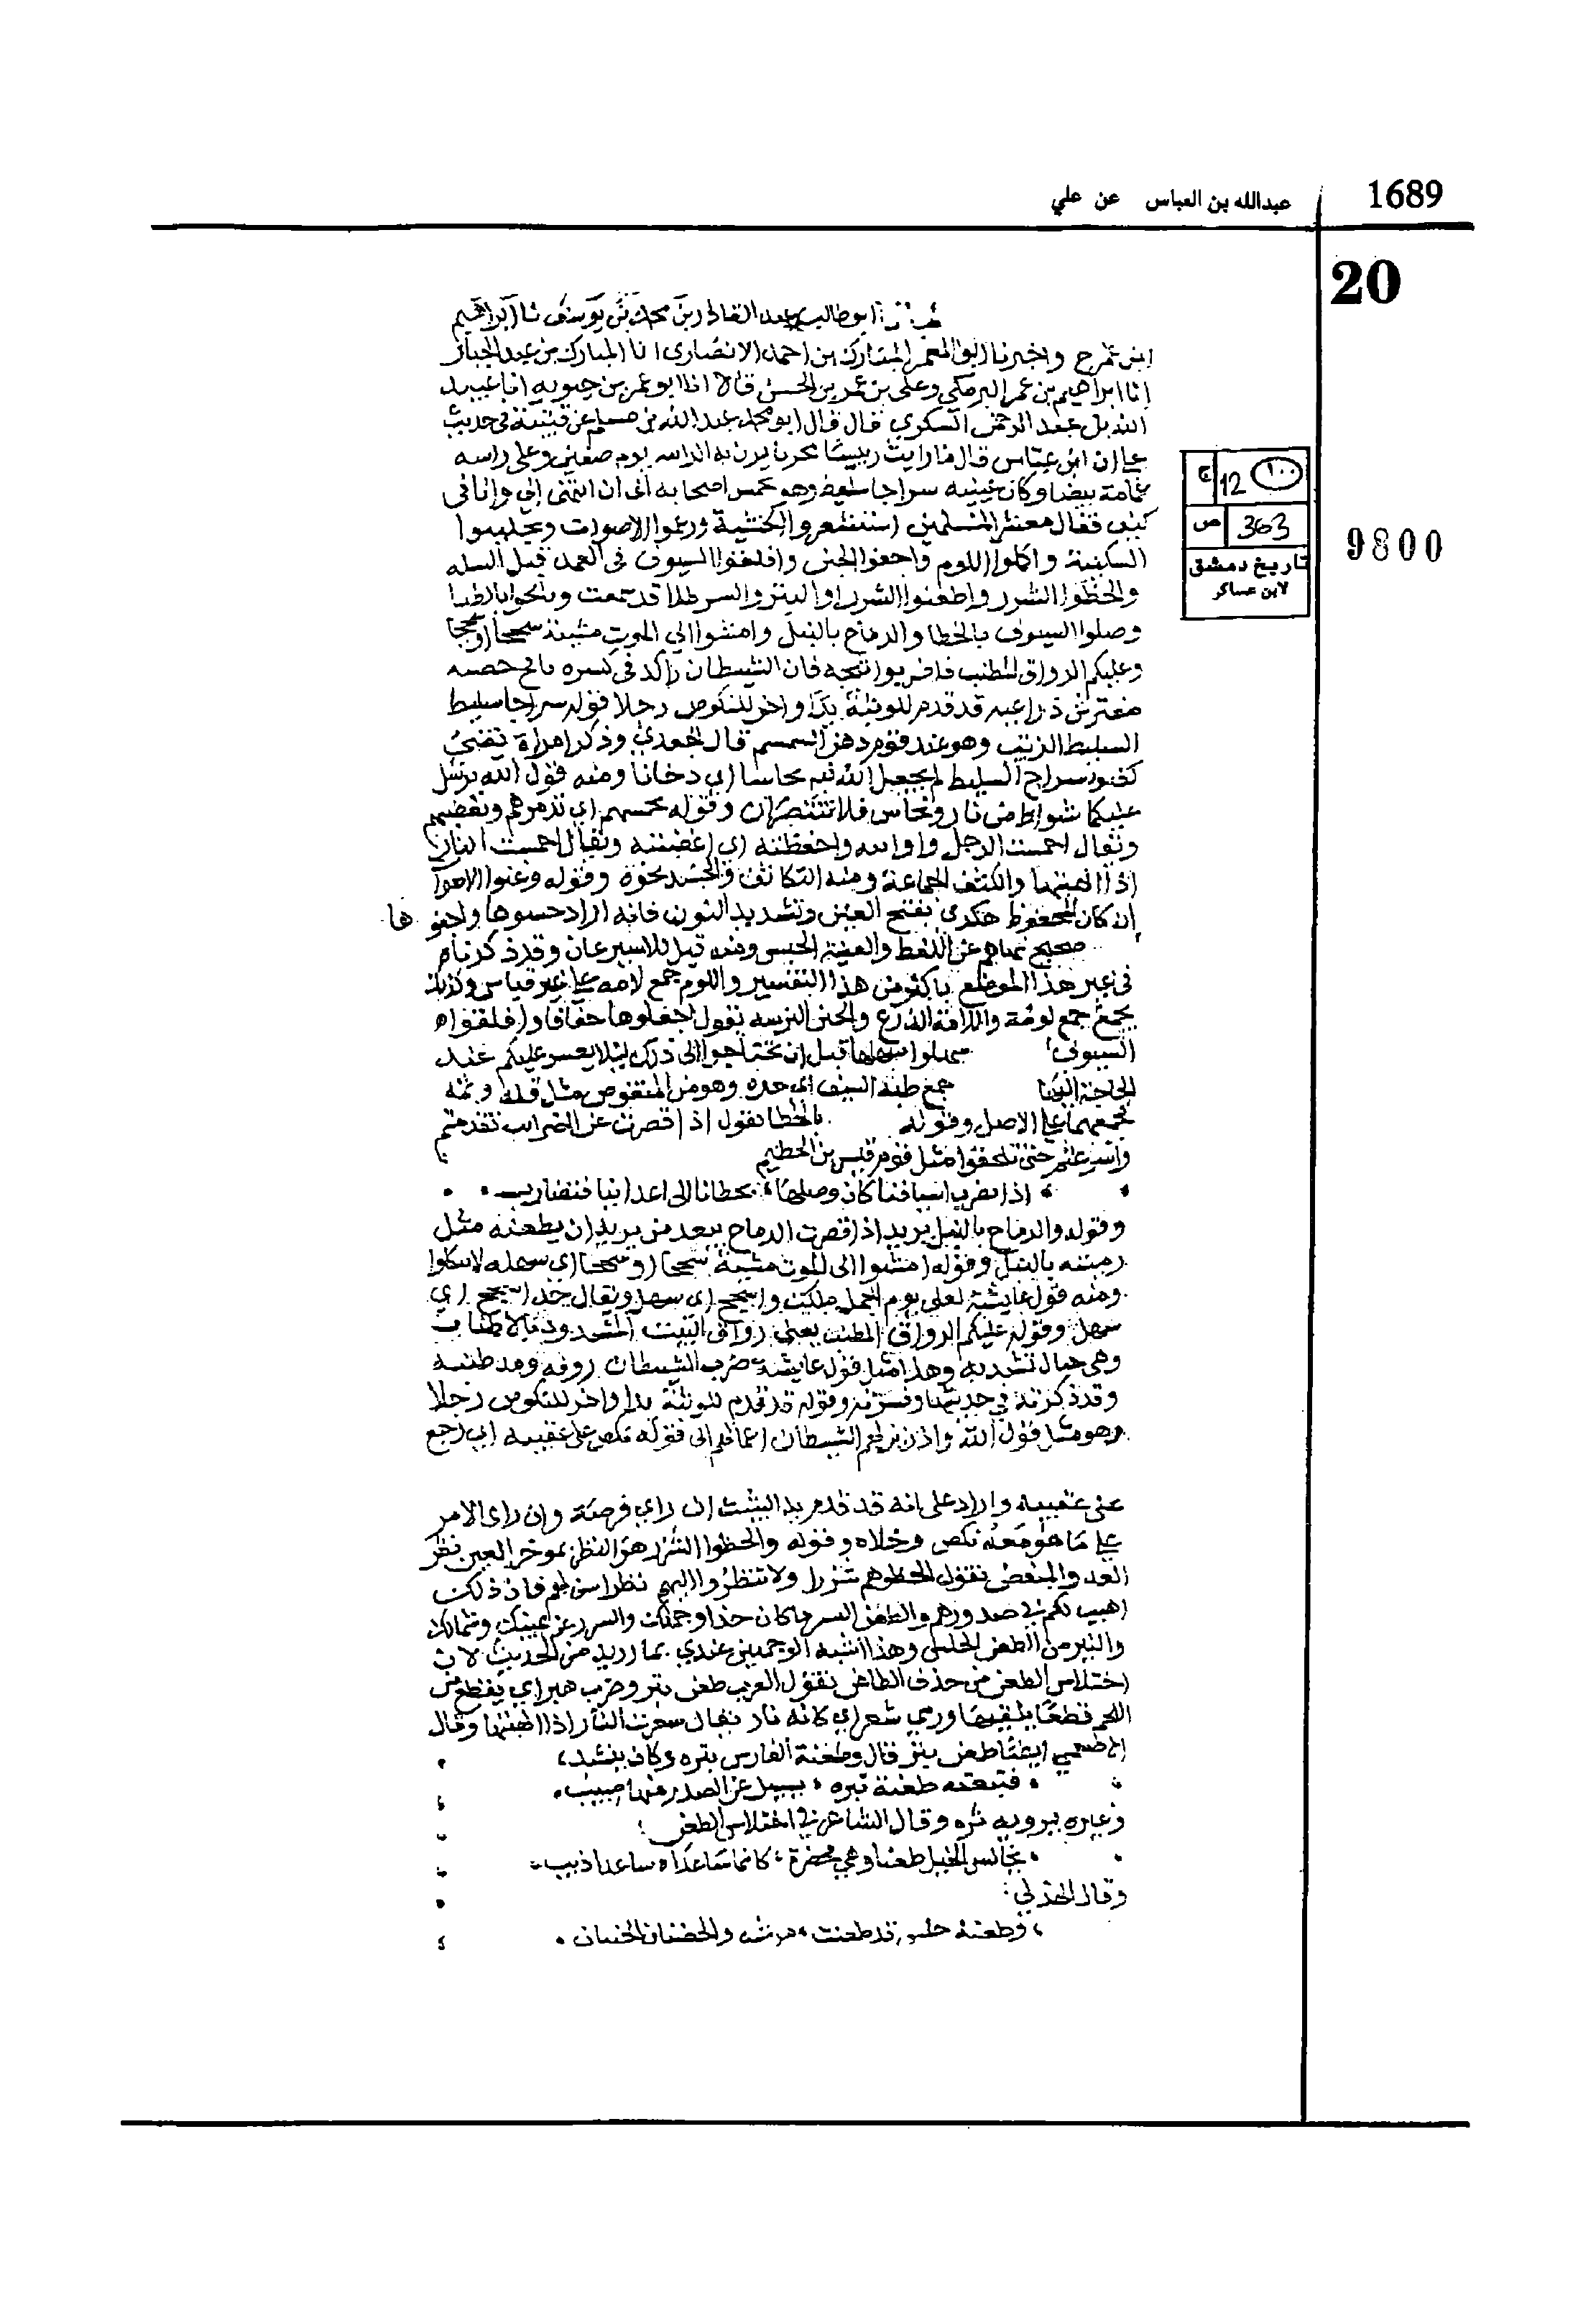 1689
عبدالله بن العباس عن علي
20
ابو طالب عبد القادر بن محمد بن يوسف نا ابراهيم
ابن عمر ح واخبرنا ابو المعمر المبارك بن احمد الانصارى انا المبارك بن عبد الجبار
انا ابراهيم بن عمر البرمكي وعلى بن عمر بن الحسن قالا انا ابو عمر بن حيويه انا عبيد
الله بن عبد الرحمن السكري قال قال ابو محمد عبد الله بن مسلم بن قتيبة في حديث
علي ان ابن عباس قال ما رايت رييسا محربا يزن به لرايته يوم صفين وعلى راسه
عمامة بيضا وكان عينيه سراجا سليط وهو يحمس اصحابه الى ان انتهى إلي وانا في
كثف فقال معشر المسلمين استشعروا الخشية وعنوا الاصوات وتجلببوا
السكينة واكملوا اللوم واخفوا الجنن واقلقوا السيوف في الغمد قبل السله
والحظوا الشزر واطعنوا الشزر او النتر واليسر كلا قد سمعت ونافحوا بالظبا
وصلوا السيوف بالخطا والرماح بالنبل وامشوا الى الموت مشية سجحا او سجحا
وعليكم الرواق المطنب فاضربوا ثبجه فان الشيطان راكد في كسره نافج حضنيه
مفترش ذراعيه قد قدم للوثبة يدا واخر للنكوص رجلا قوله سراجا سليط
السليط الزيت وهو عند قوم دهن السمسم قال الجعدي وذكر امراة تضيئ
كضوء سراج السليط لم يجعل الله فيه نحاسا اي دخانا ومنه قول الله يرسل
عليكما شواظ من نار ونحاس فلا تنتصران وقوله يحمسهم اي يذمرهم ويغضبهم
ويقال احمست الرجل واحفظته اي اغضبته ويقال احمست النار
اذا الهبتها والكثف الجماعة ومنه التكاثف والحشد نحوه وقوله وعنوا الاصوا
ان كان المحفوظ هكذى بفتح العين وتشديد النون فانه اراد حسوها واخفوها
صحيح نهاهم عن اللغط والعنية الحبس ومنه قيل للاسير عان وقد ذكرناه
في غير هذا الموضع باكثر من هذا التفسير واللوم جمع لامه على غير قياس وكذلك
يجمع جمع لومة واللامة الدرع والجنن الترسه يقول اجعلوها خفافا واقلقوا
السيوف سهلوا سلها قبل ان تحتاجوا الى ذلك ليلا يعسر عليكم عند
الحاجة اليها جمع ظبه السيف اي حده وهو من المنقوص مثل قله وثبه
تجمعهما على الاصل وقوله بالخطا يقول اذا قصرت عن الضرايب تقدمتم
حتى تلحقوا مثل قول قيس بن الخطيم
اذا قصرت اسيافنا كان وصلها خطانا الى اعداينا فنضارب
وقوله والرماح بالنبل يريد اذا قصرت الرماح ببعد من يريد ان يطعنه مثل
رميته بالنبل وقوله امشوا الى الموت مشية سجحا او سجحا اي سهله
ومنه قول عايشة لعلي يوم الجمل ملكت فاسجح اى سهل ويقال خد اسجح اي
سهل وقوله عليكم الرواق المطنب يعني رواق البيت المشدود بالاطناب
وهي حبال تشد به وهذا مثل قول عايشة ضرب الشيطان روقه ومد طنبه
وقد ذكرته في حديثها وفسرته وقوله قد قدم للوثبة يدا واخر للنكوص رجلا
وهو مثل قول الله واذ زين لهم الشيطان اعمالهم الى قوله نكص على عقبيه اي رجع
على عقبيه واراد على انه قد قدم يدا ليثب ان راى فرصة وان راى الامر
على ما هو معه نكص وخلاه وقوله والحظوا الشزر هو النظر بموخر العين نظر
العدو المبغض يقول الحظوهم شزرا ولا تنظروا اليهم نظرا فان ذلك
اهيب لكم في صدورهم والطعن اليسر ما كان حذا وجهك والشزر عن يمينك وشمالك
والنتر من الطعن الخلس وهذا اشبه الوجهين عندي بما اريد من الحديث لان
اختلاس الطعن من حذق الطاعن يقول العرب طعن نتر وضرب هبر اي يقطع من
اللحم قطعا يلقيها ورمي سعر اي كانه نار يقال سعرت النار اذا الهبتها وقال
الاصمعي ايضا طعن نتر قال وطعنة الفارس نتره وكان ينشد
فتبعته طعنة نتره يسيل على الصدر منها صبيب
وغيره يرويه ثره وقال الشاعر في اختلاس الطعن
يخالس الخيل طعنا وهي محضرة كانما ساعداه ساعدا ذيب
وقال الهذلي
وطعنة خلس قد طعنت
12
ج
363
ص
تاريخ دمشق
لابن عساكر
9800